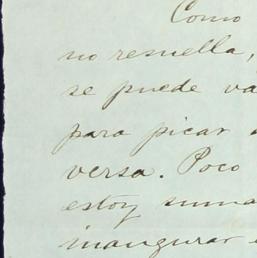 Como
no resuella,
se puede va
para picar a
versa. Poco
estoy suma
inaugurar